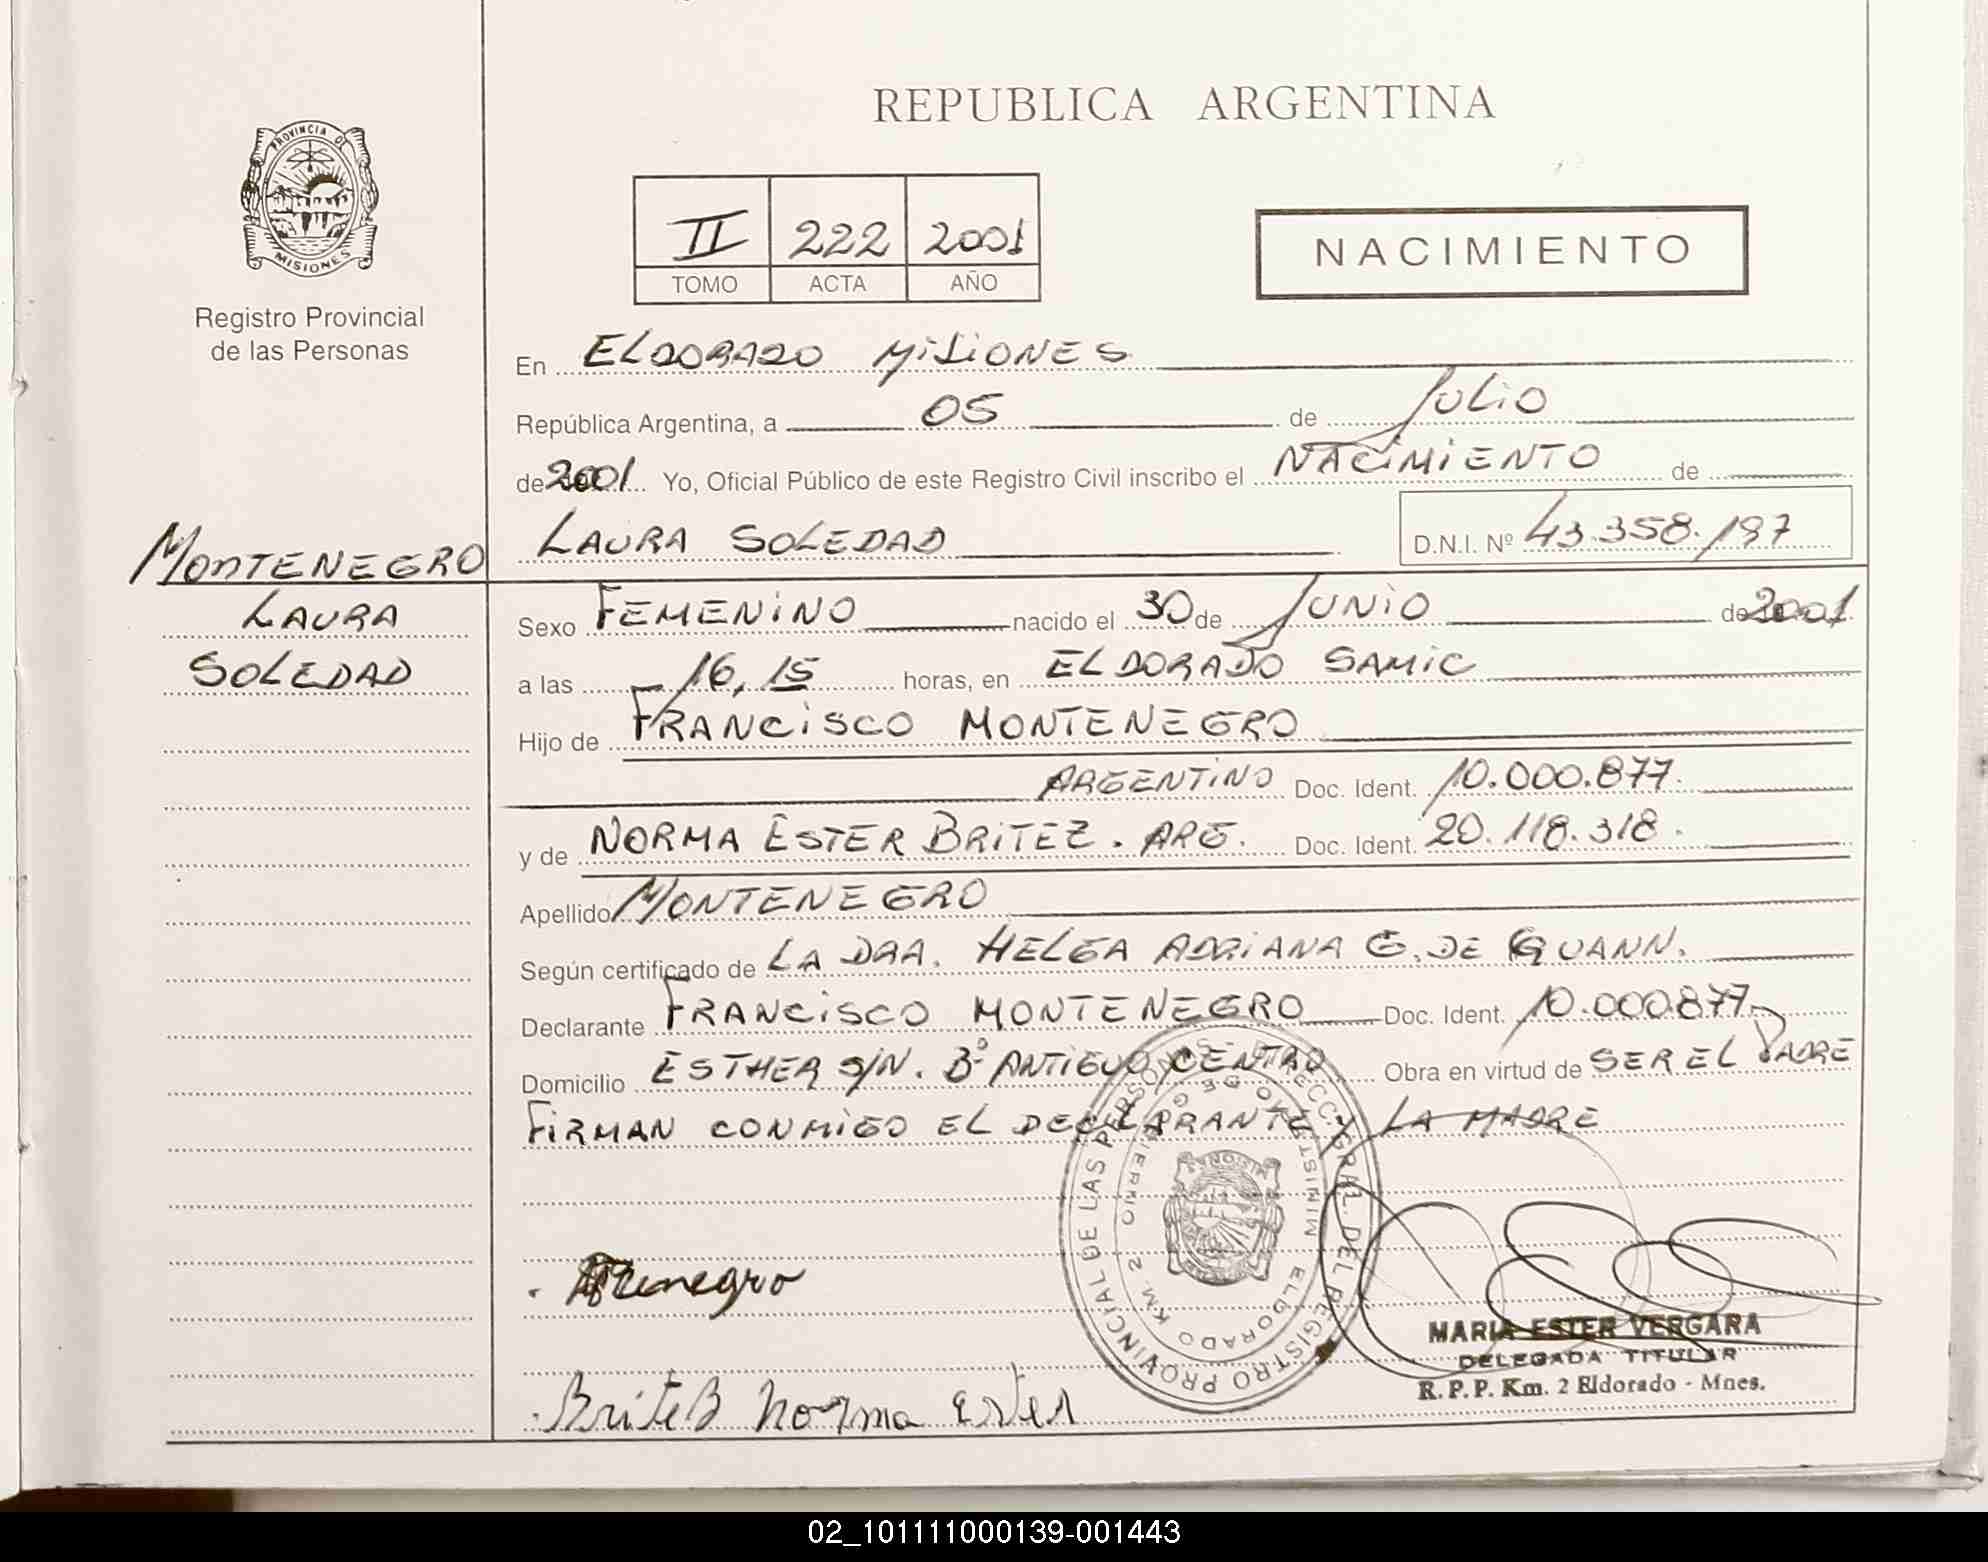 REPUBLICA ARGENTINA
PROVINCIA DE
MISIONES
Registro Provincial
de las Personas
II 222 2001
TOMO ACTA AÑO
NACIMIENTO
En ELDORADO MISIONES
República Argentina, a 05 de JULIO
de 2001 Yo, Oficial Público de este Registro Civil inscribo el NACIMIENTO de
LAURA SOLEDAD D.N.I. Nº 43.358.197
MONTENEGRO
LAURA
SOLEDAD
Sexo FEMENINO nacido el 30 de JUNIO de 2001
a las 16,15 horas, en ELDORADO SAMIC
Hijo de FRANCISCO MONTENEGRO
ARGENTINO Doc. Ident. 10.000.877.
y de NORMA ESTER BRITEZ. ARG. Doc. Ident. 20.118.318.
Apellido MONTENEGRO
Según certificado de LA DRA. HELGA ADRIANA G. DE GUANN.
Declarante FRANCISCO MONTENEGRO Doc. Ident. 10.000.877
Domicilio ESTHER S/N. Bº ANTIGUO CENTRO Obra en virtud de SER EL PADRE
FIRMAN CONMIGO EL DECLARANTE Y LA MADRE
REGISTRO PROVINCIAL DE LAS PERSONAS - DIRECC. GRAL. DEL
MINISTERIO DE GOBIERNO
KM. 2 ELDORADO
MISIONES
MARIA ESTER VERGARA
DELEGADA TITULAR
R.P.P. Km. 2 Eldorado - Mnes.
Britez Norma Ester
02_101111000139-001443